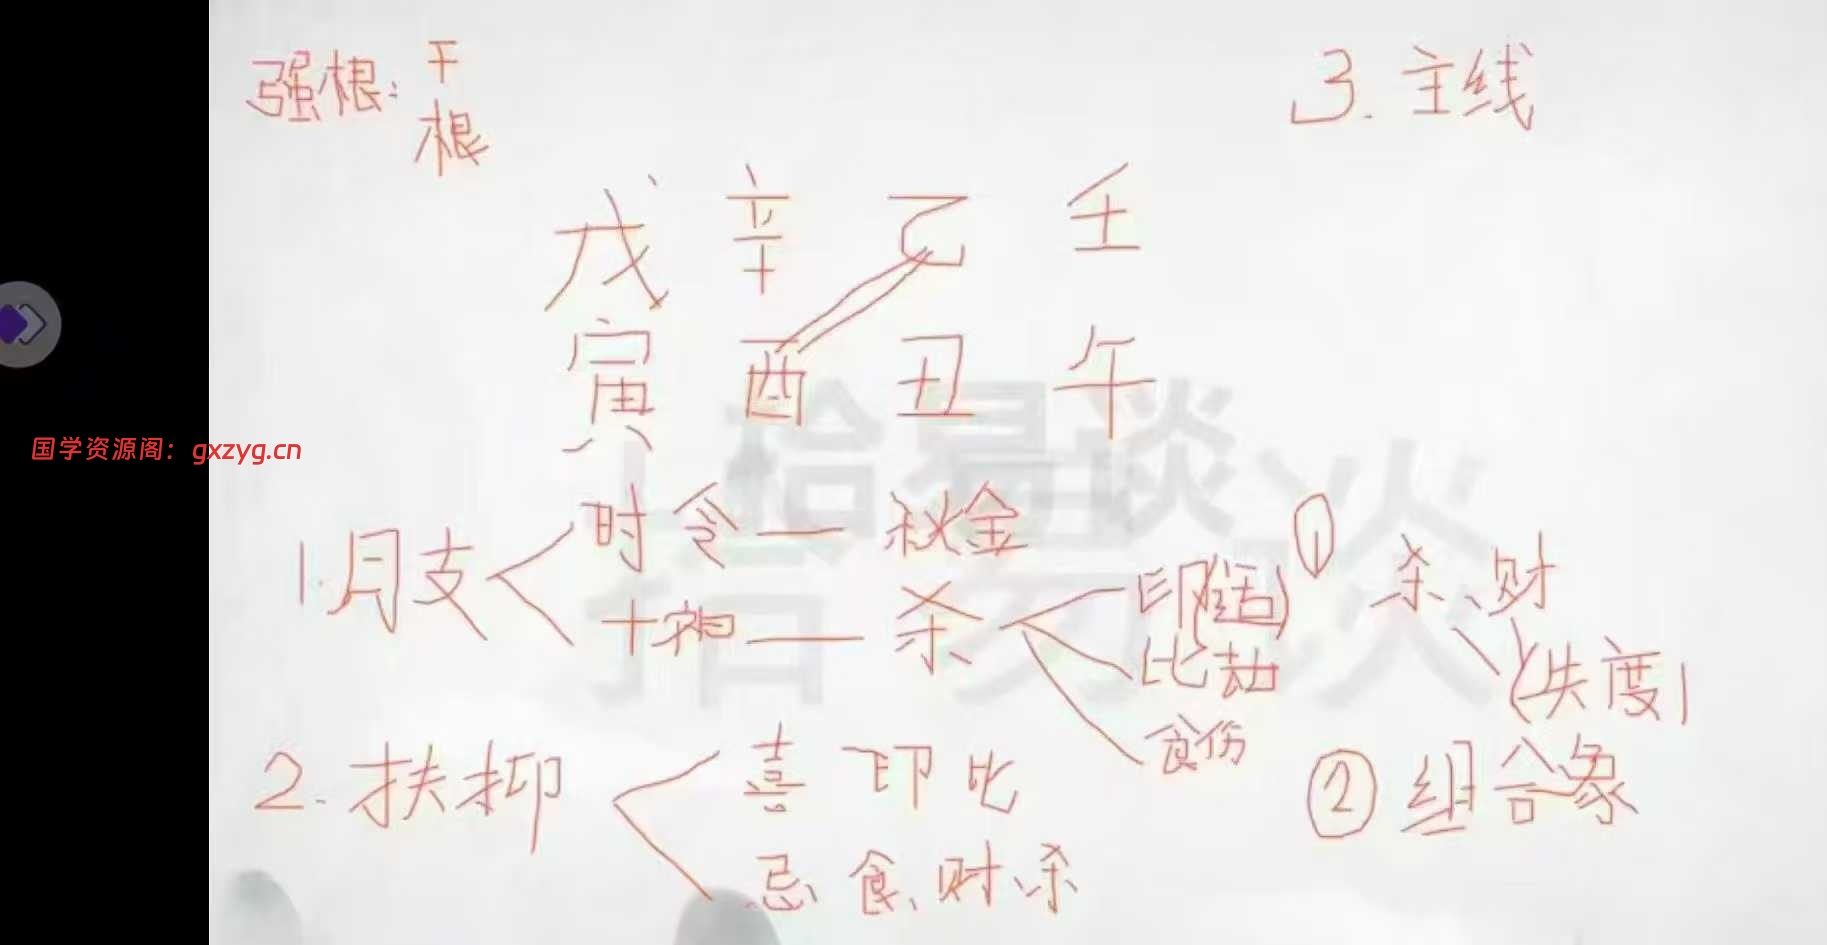 强根：干
根
3.主线
戊 辛 己 壬
寅 酉 丑 午
拾易谈
国学资源阁：gxzyg.cn
1.月支 时令 — 秋金
十神 — 杀
印(适)
比劫
食伤
① 杀、财
(失度)
2.扶抑 喜 印比
忌 食、财、杀
② 组合象